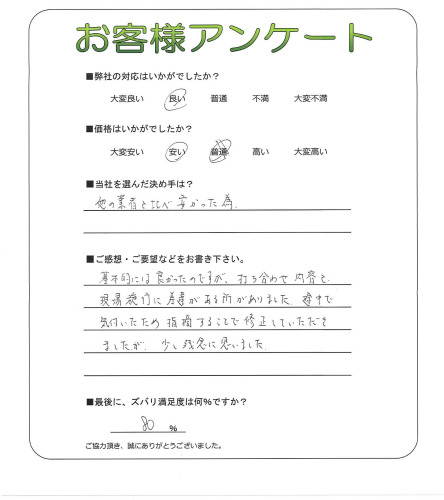 お客様アンケート
■弊社の対応はいかがでしたか?
大変良い 良い 普通 不満 大変不満
■価格はいかがでしたか?
大変安い 安い 普通 高い 大変高い
■当社を選んだ決め手は?
他の業者と比べ安かった為.
■ご感想・ご要望などをお書き下さい。
基本的には良かったのですが、打ち合わせ内容と
現場施行に差異がある所がありました. 途中で
気付いたため指摘することで修正していただき
ましたが、少し残念に思いました.
■最後に、ズバリ満足度は何%ですか?
80 %
ご協力頂き、誠にありがとうございました。